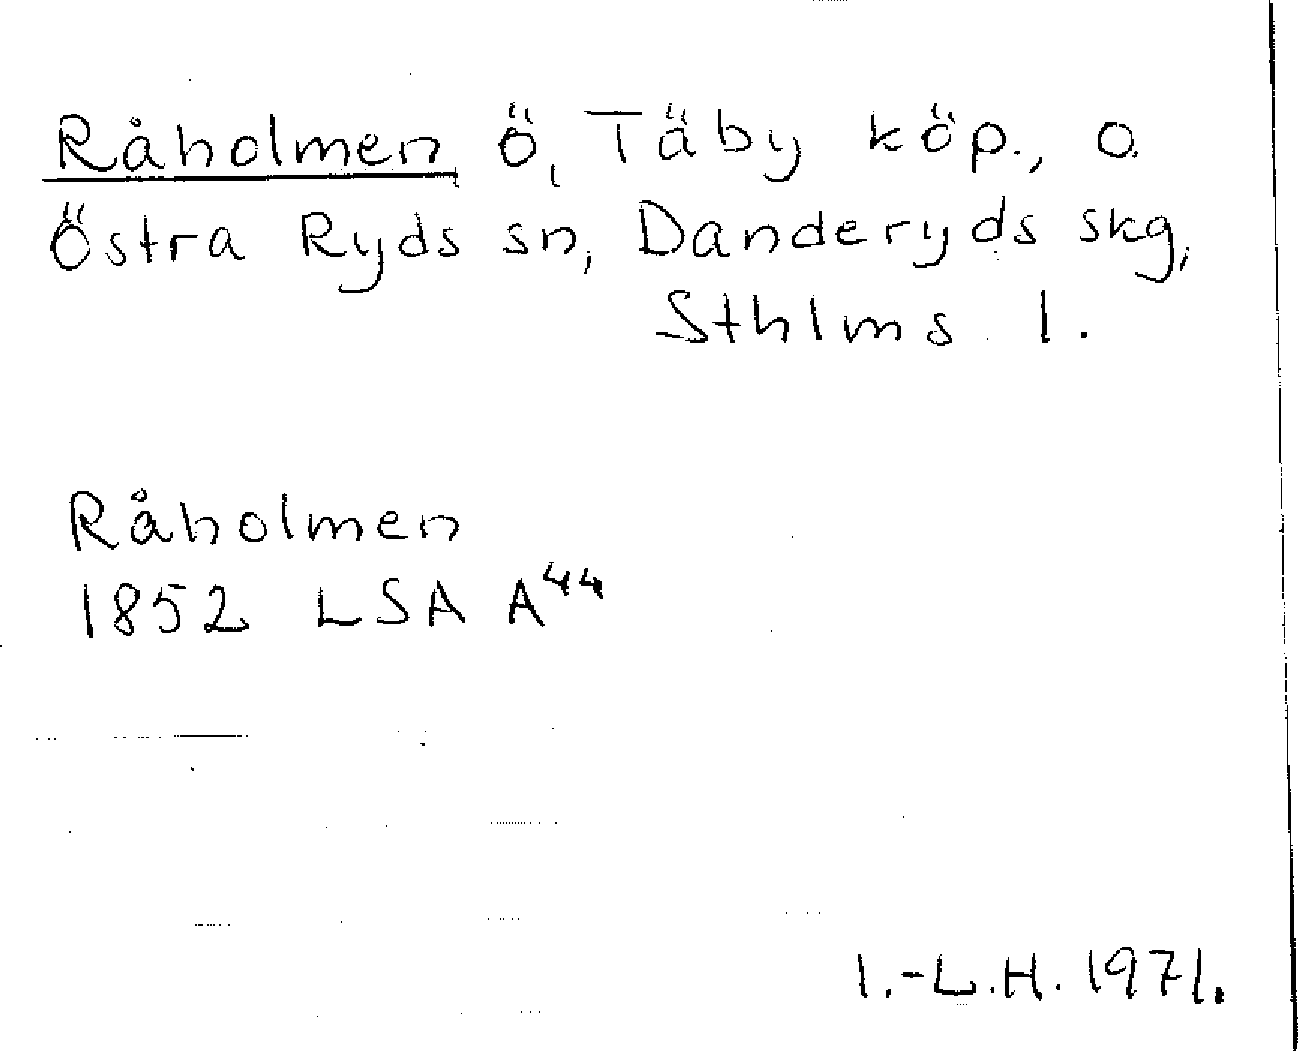 Råholmen ö, Täby köp., o.
Östra Ryds sn, Danderyds skg,
Sthlms l.
Råholmen
1852 LSA A⁴⁴
I.-L.H. 1971.